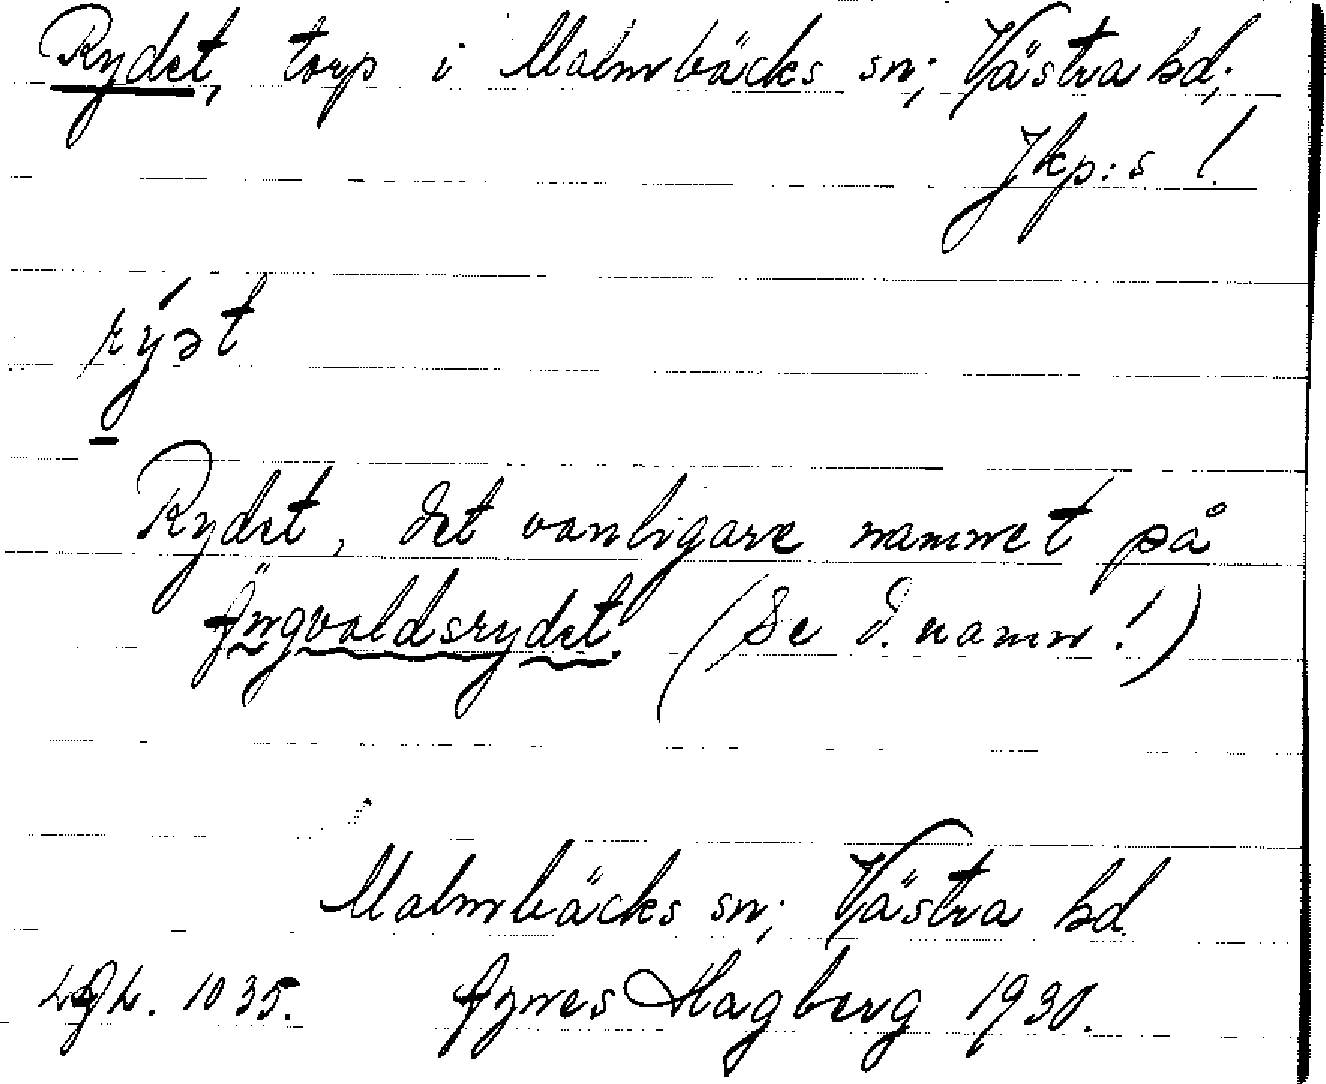 Rydet, torp i Malmbäcks sn; Västra hd;
Jkp:s l.
rýət
Rydet, det vanligare namnet på
Ängvaldsrydet. (Se d. namn!)
Malmbäcks sn; Västra hd.
1035. Agnes Hagberg 1930.